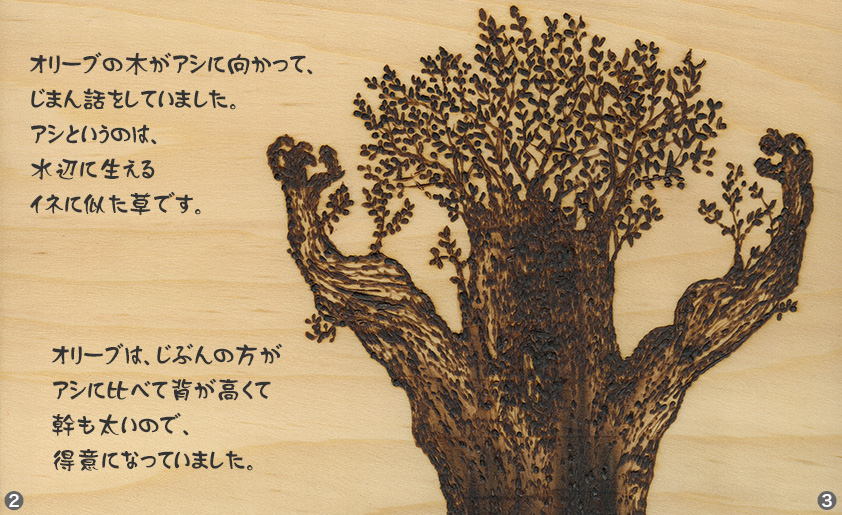 オリーブの木がアシに向かって、
じまん話をしていました。
アシというのは、
水辺に生える
イネに似た草です。
オリーブは、じぶんの方が
アシに比べて背が高くて
幹も太いので、
得意になっていました。
2
3